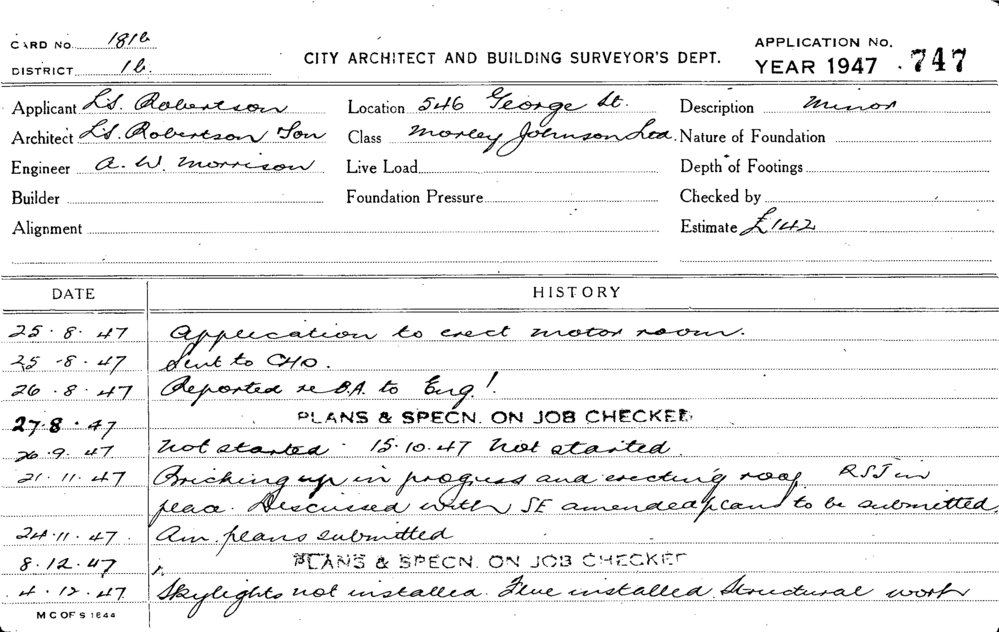 CARD No. 181b
DISTRICT 1b.
CITY ARCHITECT AND BUILDING SURVEYOR'S DEPT.
APPLICATION No. 747
YEAR 1947
Applicant L.S. Robertson Location 546 George St. Description Minor
Architect L.S. Robertson & Son Class Morley Johnson Ltd. Nature of Foundation
Engineer A. W. Morrison Live Load Depth of Footings
Builder Foundation Pressure Checked by
Alignment Estimate £142
DATE HISTORY
25.8.47 Application to erect motor room.
25-8.47 Sent to CHO.
26.8.47 Reported re B.A. to Eng!
27.8.47 PLANS & SPECN. ON JOB CHECKED
26.9.47 Not started 15.10.47 Not started.
21.11.47 Bricking up in progress and erecting roof RSJ in
place. Discussed with SE amended plans to be submitted.
24.11.47. Am. plans submitted
8.12.47 PLANS & SPECN. ON JOB CHECKED
4.12.47 Skylights not installed. Flue installed Structural work
M C OF S 1844